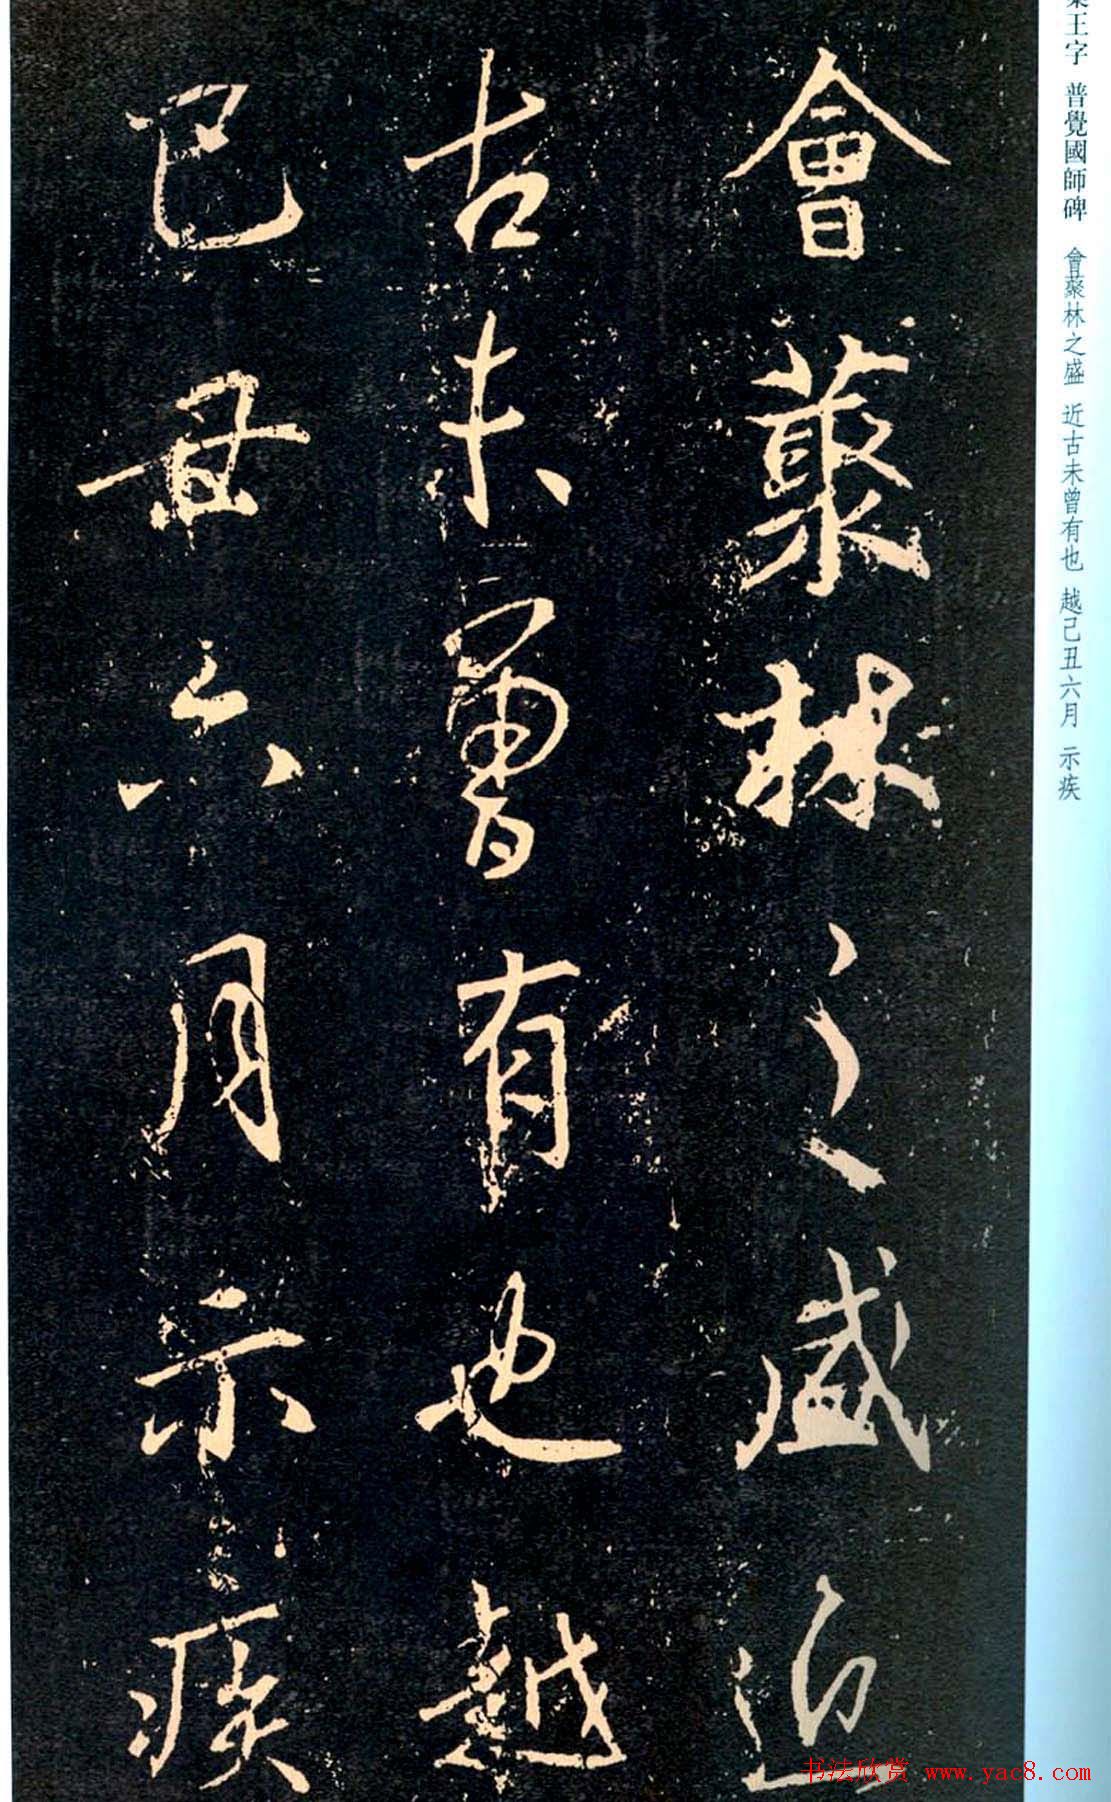 會藂林之盛近
古未曾有也越
己丑六月示疾
集王字 普覺國師碑 會藂林之盛 近古未曾有也 越己丑六月 示疾
书法欣赏 www.yac8.com